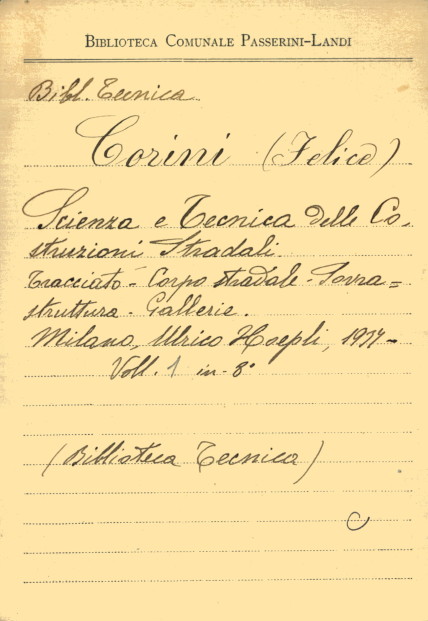 BIBLIOTECA COMUNALE PASSERINI-LANDI
Bibl. Tecnica
Corini (Felice)
Scienza e Tecnica delle Co-
struzioni Stradali.
Tracciato - Corpo stradale - Sovra=
struttura - Gallerie.
Milano, Ulrico Hoepli, 1937-
Voll. 1 in-8°
(Biblioteca Tecnica)
C